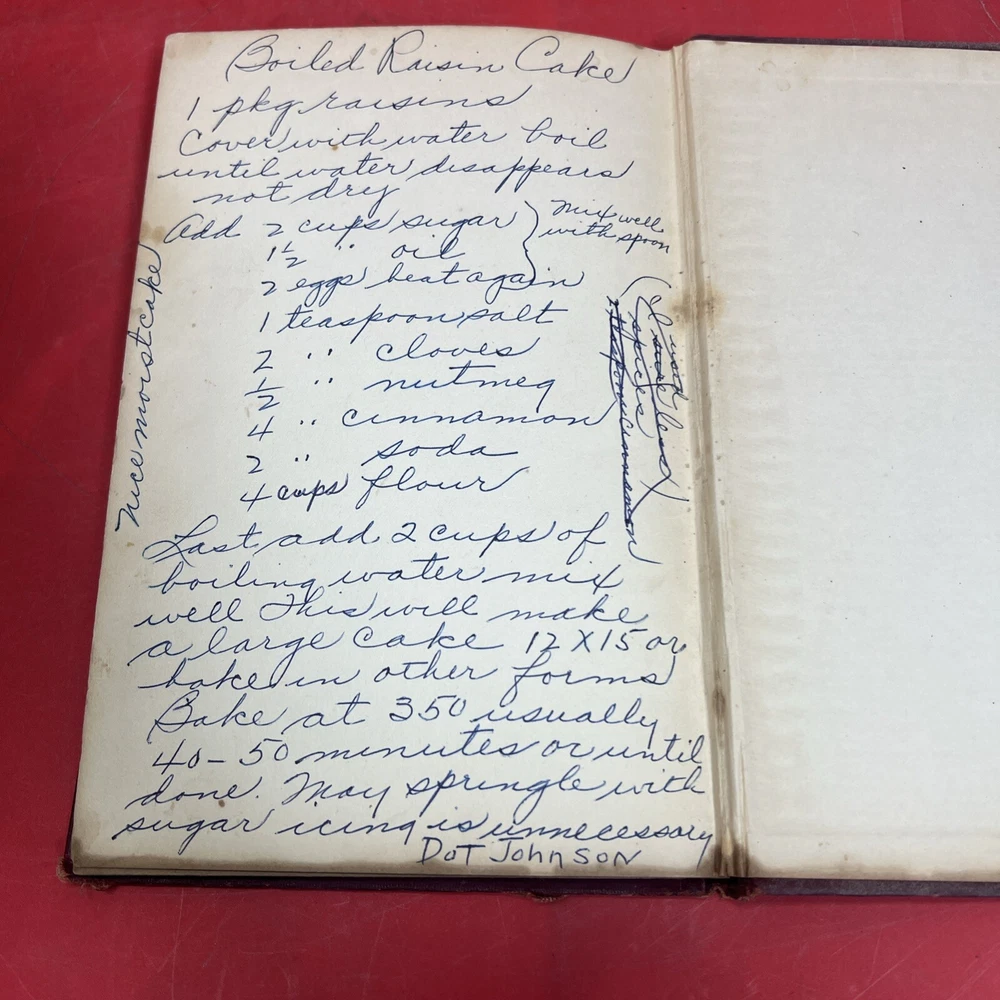 Boiled Raisin Cake
1 pkg raisins
Cover with water boil
until water disappears
not dry
Add 2 cups sugar
1 1/2 " oil
Mix well
with spoon
2 eggs beat again
1 teaspoon salt
2 " cloves
1/2 " nutmeg
4 " cinnamon
2 " soda
4 cups flour
(I used
less
spices)
teaspoon cinnamon
Nice moist cake
Last add 2 cups of
boiling water mix
well This will make
a large cake 12 X 15 or
bake in other forms
Bake at 350 usually
40-50 minutes or until
done. May springle with
sugar icing is unnecessary
Dot Johnson